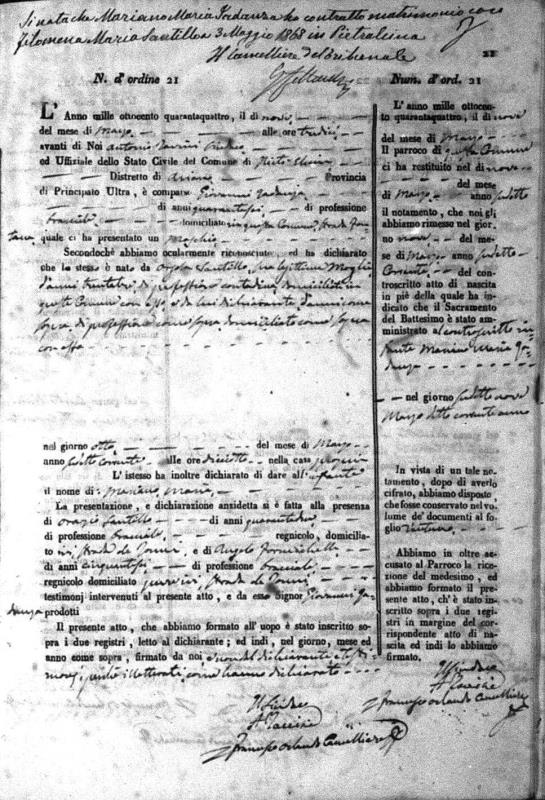 Si nota che Mariano Maria Iadanza ha contratto matrimonio con
Filomena Maria Santillo a 3 Maggio 1868 in Pietralcina
Il Cancelliere del tribunale
21
N. d'ordine 21
L'Anno mille ottocento quarantaquattro, il dì nove
del mese di Marzo alle ore tredici
avanti di Noi Antonio Sindaco
ed Uffiziale dello Stato Civile del Comune di
Distretto di Ariano Provincia
di Principato Ultra, è comparso Giovanni Iadanza
di anni quarantasei di professione
bracciale domiciliato in questo Comune, Strada
quale ci ha presentato un Maschio
Secondochè abbiamo ocularmente riconosciuto, ed ha dichiarato
che lo stesso è nato da Orsola Santillo, sua legittima Moglie
d'anni trentatre, di professione contadina, domiciliata in
questo Comune con esso, e da lui dichiarante, d'anni come
sopra, di professione come sopra domiciliato come sopra
con essa
nel giorno otto del mese di Marzo
anno sudetto corrente alle ore diciotto nella casa propria
L'istesso ha inoltre dichiarato di dare all'infante
il nome di Mariano Maria
La presentazione, e dichiarazione anzidetta si è fatta alla presenza
di Orazio Santillo di anni
di professione bracciale regnicolo, domicilia-
to ivi, Strada e di Angelo
di anni cinquantasei di professione bracciale
regnicolo domiciliato pure ivi, Strada
testimonj intervenuti al presente atto, e da esso Signor Giovanni Ia-
danza prodotti
Il presente atto, che abbiamo formato all'uopo è stato inscritto so-
pra i due registri, letto al dichiarante; ed indi, nel giorno, mese ed
anno come sopra, firmato da noi e non dal dichiarante e testi-
monj, perchè illetterati, come hanno dichiarato
Il Sindaco
Francesco Orlando Cancelliere
Num. d'ord. 21
L'anno mille ottocen-
to quarantaquattro, il dì nove
del mese di Marzo
Il parroco di questo Comune
ci ha restituito nel dì nove
del mese
di Marzo anno sudetto
il notamento, che noi gli
abbiamo rimesso nel gior-
no nove del me-
se di Marzo sudetto
Corrente del con-
troscritto atto di nascita
in piè della quale ha in-
dicato che il Sacramento
del Battesimo è stato am-
ministrato al controscritto in-
fante Mariano Maria Ia-
danza
nel giorno sudetto nove
Marzo detto corrente anno
In vista di un tale no-
tamento, dopo di averlo
cifrato, abbiamo disposto
che fosse conservato nel vo-
lume de' documenti al fo-
glio ventuno
Abbiamo in oltre ac-
cusato al Parroco la rice-
zione del medesimo, ed
abbiamo formato il pre-
sente atto, ch'è stato in-
scritto sopra i due regi-
stri in margine del cor-
rispondente atto di na-
scita ed indi lo abbiamo
firmato.
Il Sindaco
Francesco Orlando Cancelliere